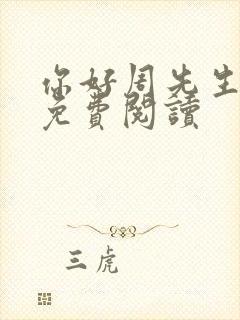 你好周先生
免費閱讀
三虎